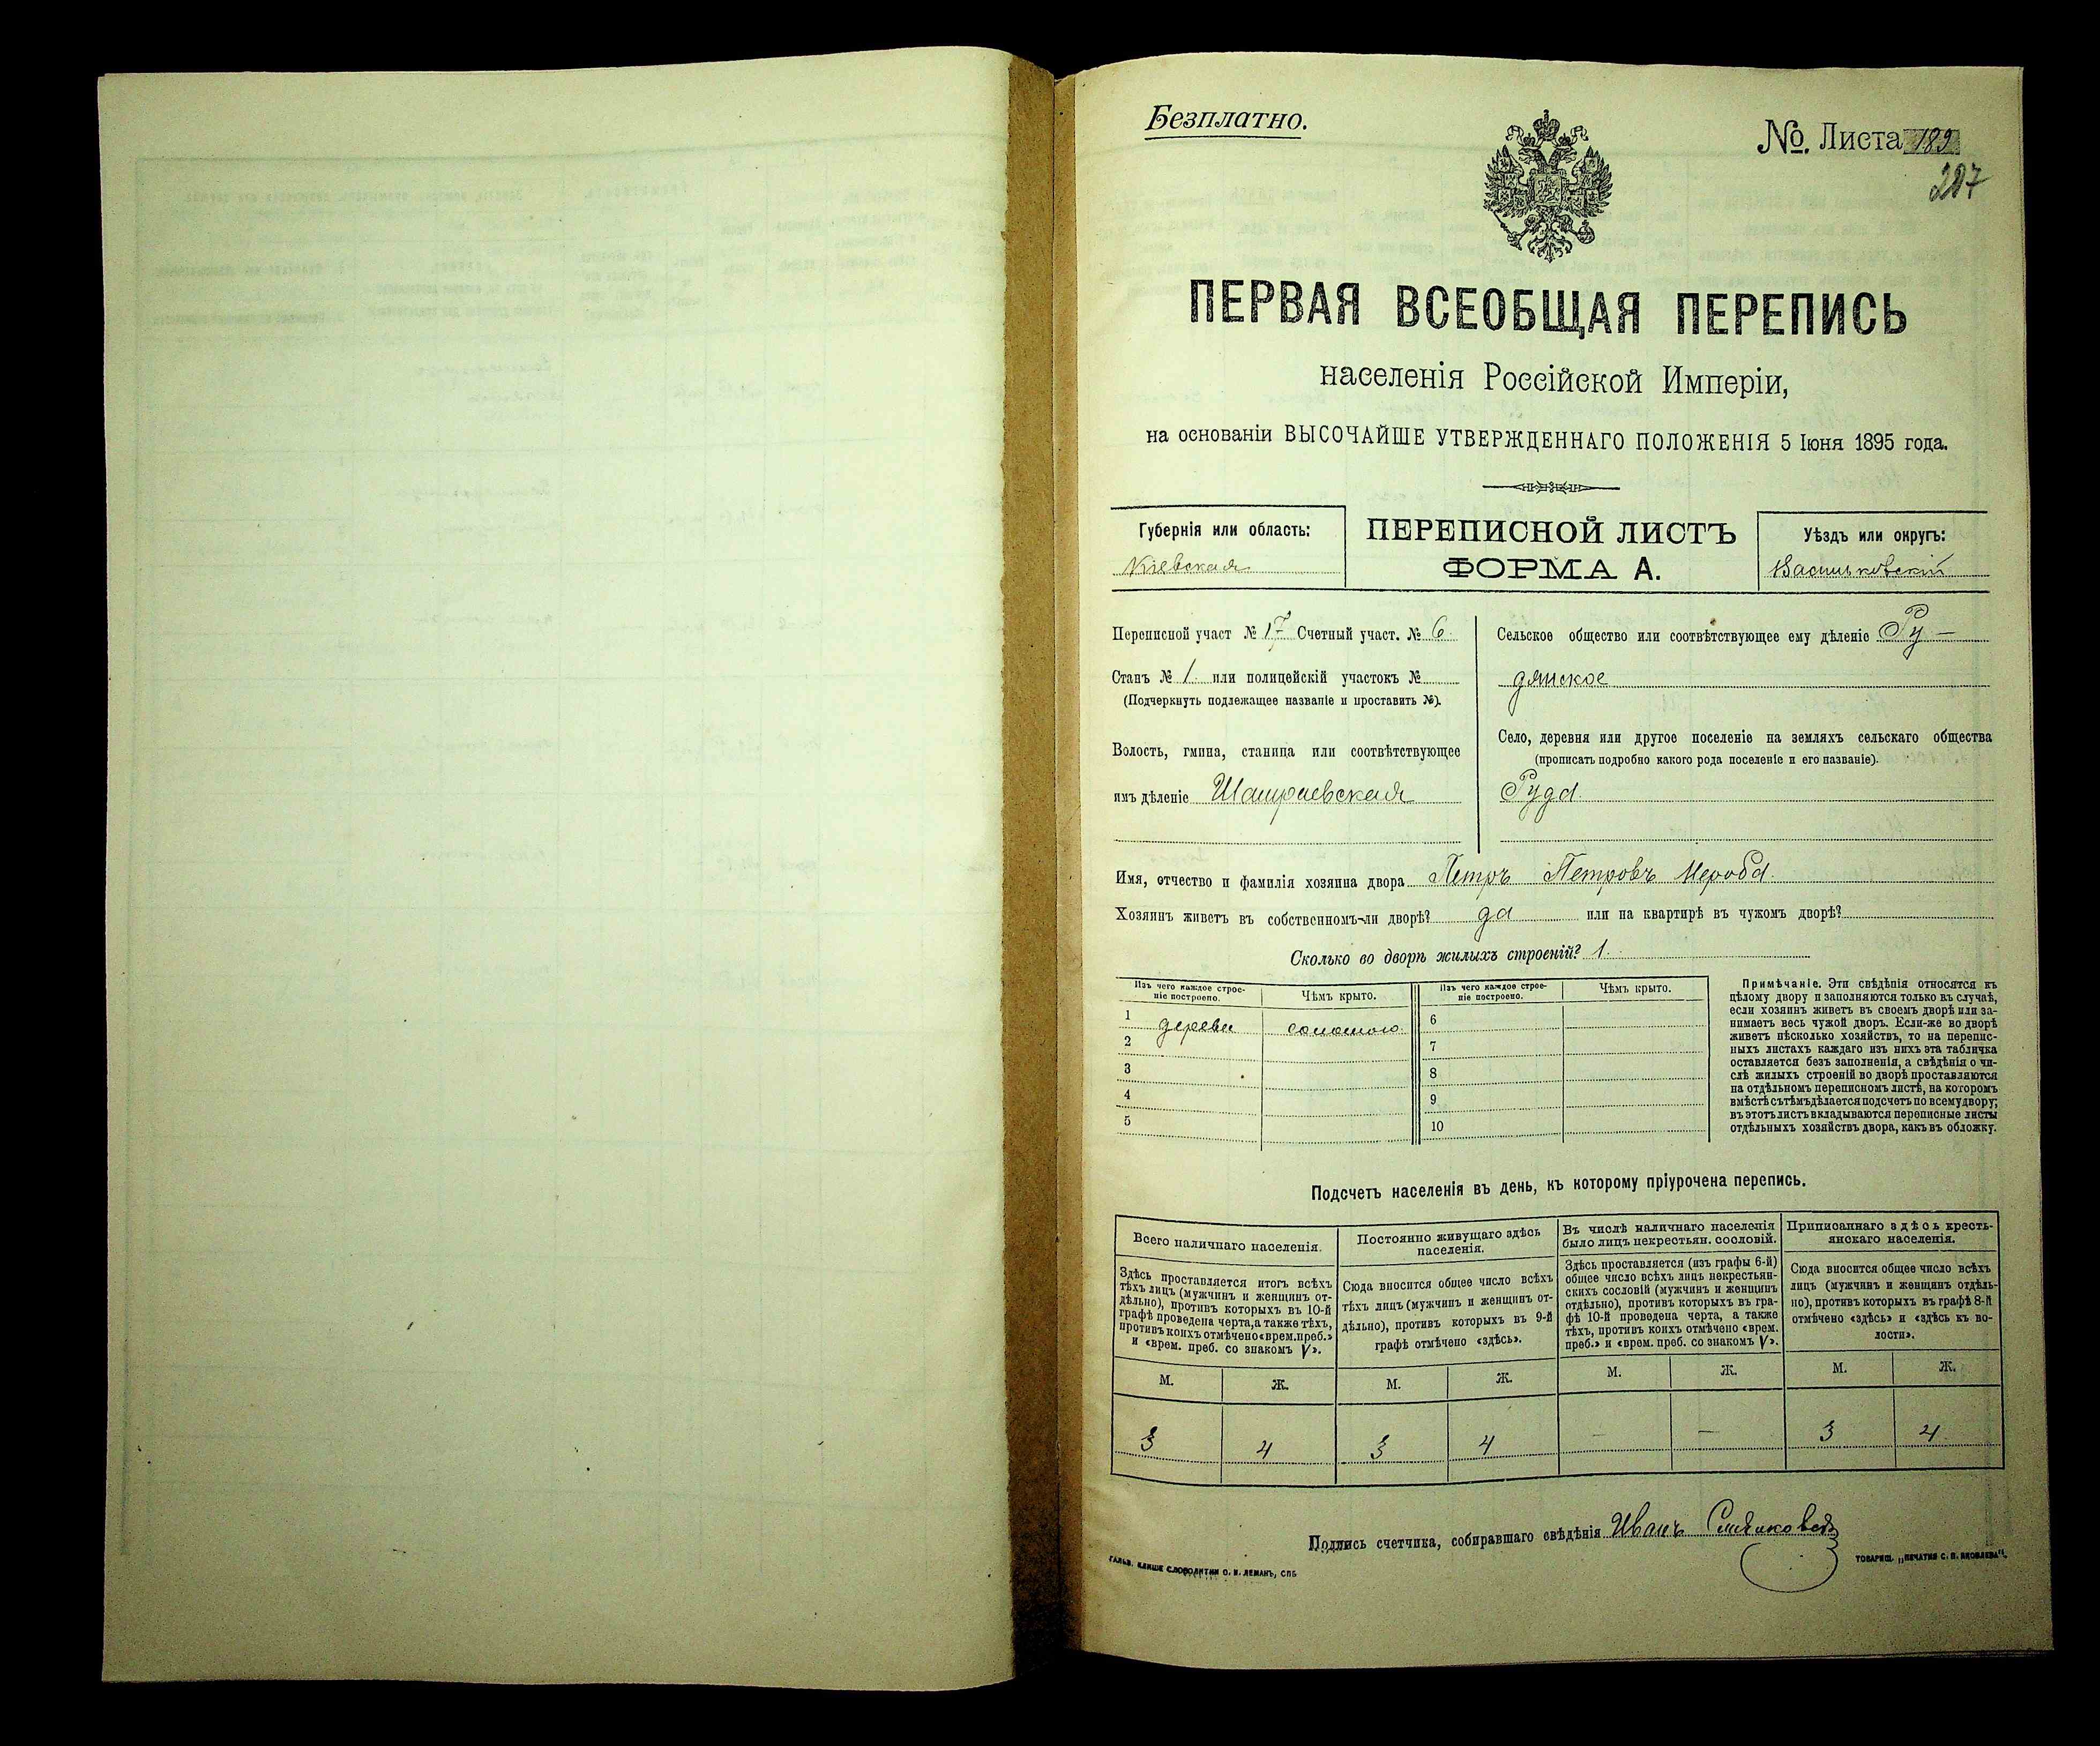 Безплатно.
№. Листа 189
207
ПЕРВАЯ ВСЕОБЩАЯ ПЕРЕПИСЬ
населенія Россійской Имперіи,
на основаніи ВЫСОЧАЙШЕ УТВЕРЖДЕННАГО ПОЛОЖЕНІЯ 5 Іюня 1895 года.
Губернія или область:
Кіевская
ПЕРЕПИСНОЙ ЛИСТЪ
ФОРМА А.
Уѣздъ или округъ:
Васильковскій
Переписной участ № 17 Счетный участ. № 6.
Станъ № 1. или полицейскій участокъ №
(Подчеркнуть подлежащее названіе и проставить №).
Волость, гмина, станица или соотвѣтствующее
имъ дѣленіе Шамраевская
Сельское общество или соотвѣтствующее ему дѣленіе Ру-
дянское
Село, деревня или другое поселеніе на земляхъ сельскаго общества
(прописать подробно какого рода поселеніе и его названіе).
Руда.
Имя, отчество и фамилія хозяина двора Петръ Петровъ
Хозяинъ живетъ въ собственномъ-ли дворѣ? да или на квартирѣ въ чужомъ дворѣ?
Сколько во дворѣ жилыхъ строеній? 1.
Изъ чего каждое строе-
ніе построено.
Чѣмъ крыто.
Изъ чего каждое строе-
ніе построено.
Чѣмъ крыто.
1 дерева соломою 6
2 7
3 8
4 9
5 10
Примѣчаніе. Эти свѣдѣнія относятся къ
цѣлому двору и заполняются только въ случаѣ,
если хозяинъ живетъ въ своемъ дворѣ или за-
нимаетъ весь чужой дворъ. Если-же во дворѣ
живетъ нѣсколько хозяйствъ, то на перепис-
ныхъ листахъ каждаго изъ нихъ эта табличка
оставляется безъ заполненія, а свѣдѣнія о чи-
слѣ жилыхъ строеній во дворѣ проставляются
на отдѣльномъ переписномъ листѣ, на которомъ
вмѣстѣ съ тѣмъ дѣлается подсчетъ по всему двору;
въ этотъ листъ вкладываются переписные листы
отдѣльныхъ хозяйствъ двора, какъ въ обложку.
Подсчетъ населенія въ день, къ которому пріурочена перепись.
Всего наличнаго населенія.
Здѣсь проставляется итогъ всѣхъ
тѣхъ лицъ (мужчинъ и женщинъ от-
дѣльно), противъ которыхъ въ 10-й
графѣ проведена черта, а также тѣхъ,
противъ коихъ отмѣчено «врем. преб.»
и «врем. преб. со знакомъ V».
Постоянно живущаго здѣсь
населенія.
Сюда вносится общее число всѣхъ
тѣхъ лицъ (мужчинъ и женщинъ от-
дѣльно), противъ которыхъ въ 9-й
графѣ отмѣчено «здѣсь».
Въ числѣ наличнаго населенія
было лицъ некрестьян. сословій.
Здѣсь проставляется (изъ графы 6-й)
общее число всѣхъ лицъ некрестьян-
скихъ сословій (мужчинъ и женщинъ
отдѣльно), противъ которыхъ въ гра-
фѣ 10-й проведена черта, а также
тѣхъ, противъ коихъ отмѣчено «врем.
преб.» и «врем. преб. со знакомъ V».
Приписаннаго здѣсь кресть-
янскаго населенія.
Сюда вносится общее число всѣхъ
лицъ (мужчинъ и женщинъ отдѣль-
но), противъ которыхъ въ графѣ 8-й
отмѣчено «здѣсь» и «здѣсь къ во-
лости».
М. Ж. М. Ж. М. Ж. М. Ж.
3 4 3 4 — — 3 4
Подпись счетчика, собиравшаго свѣдѣнія Иванъ
ГАЛЬВ. КЛИШЕ СЛОВОЛИТНИ О. И. ЛЕМАНЪ, СПБ
ТОВАРИЩ. „ПЕЧАТНЯ С. П. ЯКОВЛЕВА".